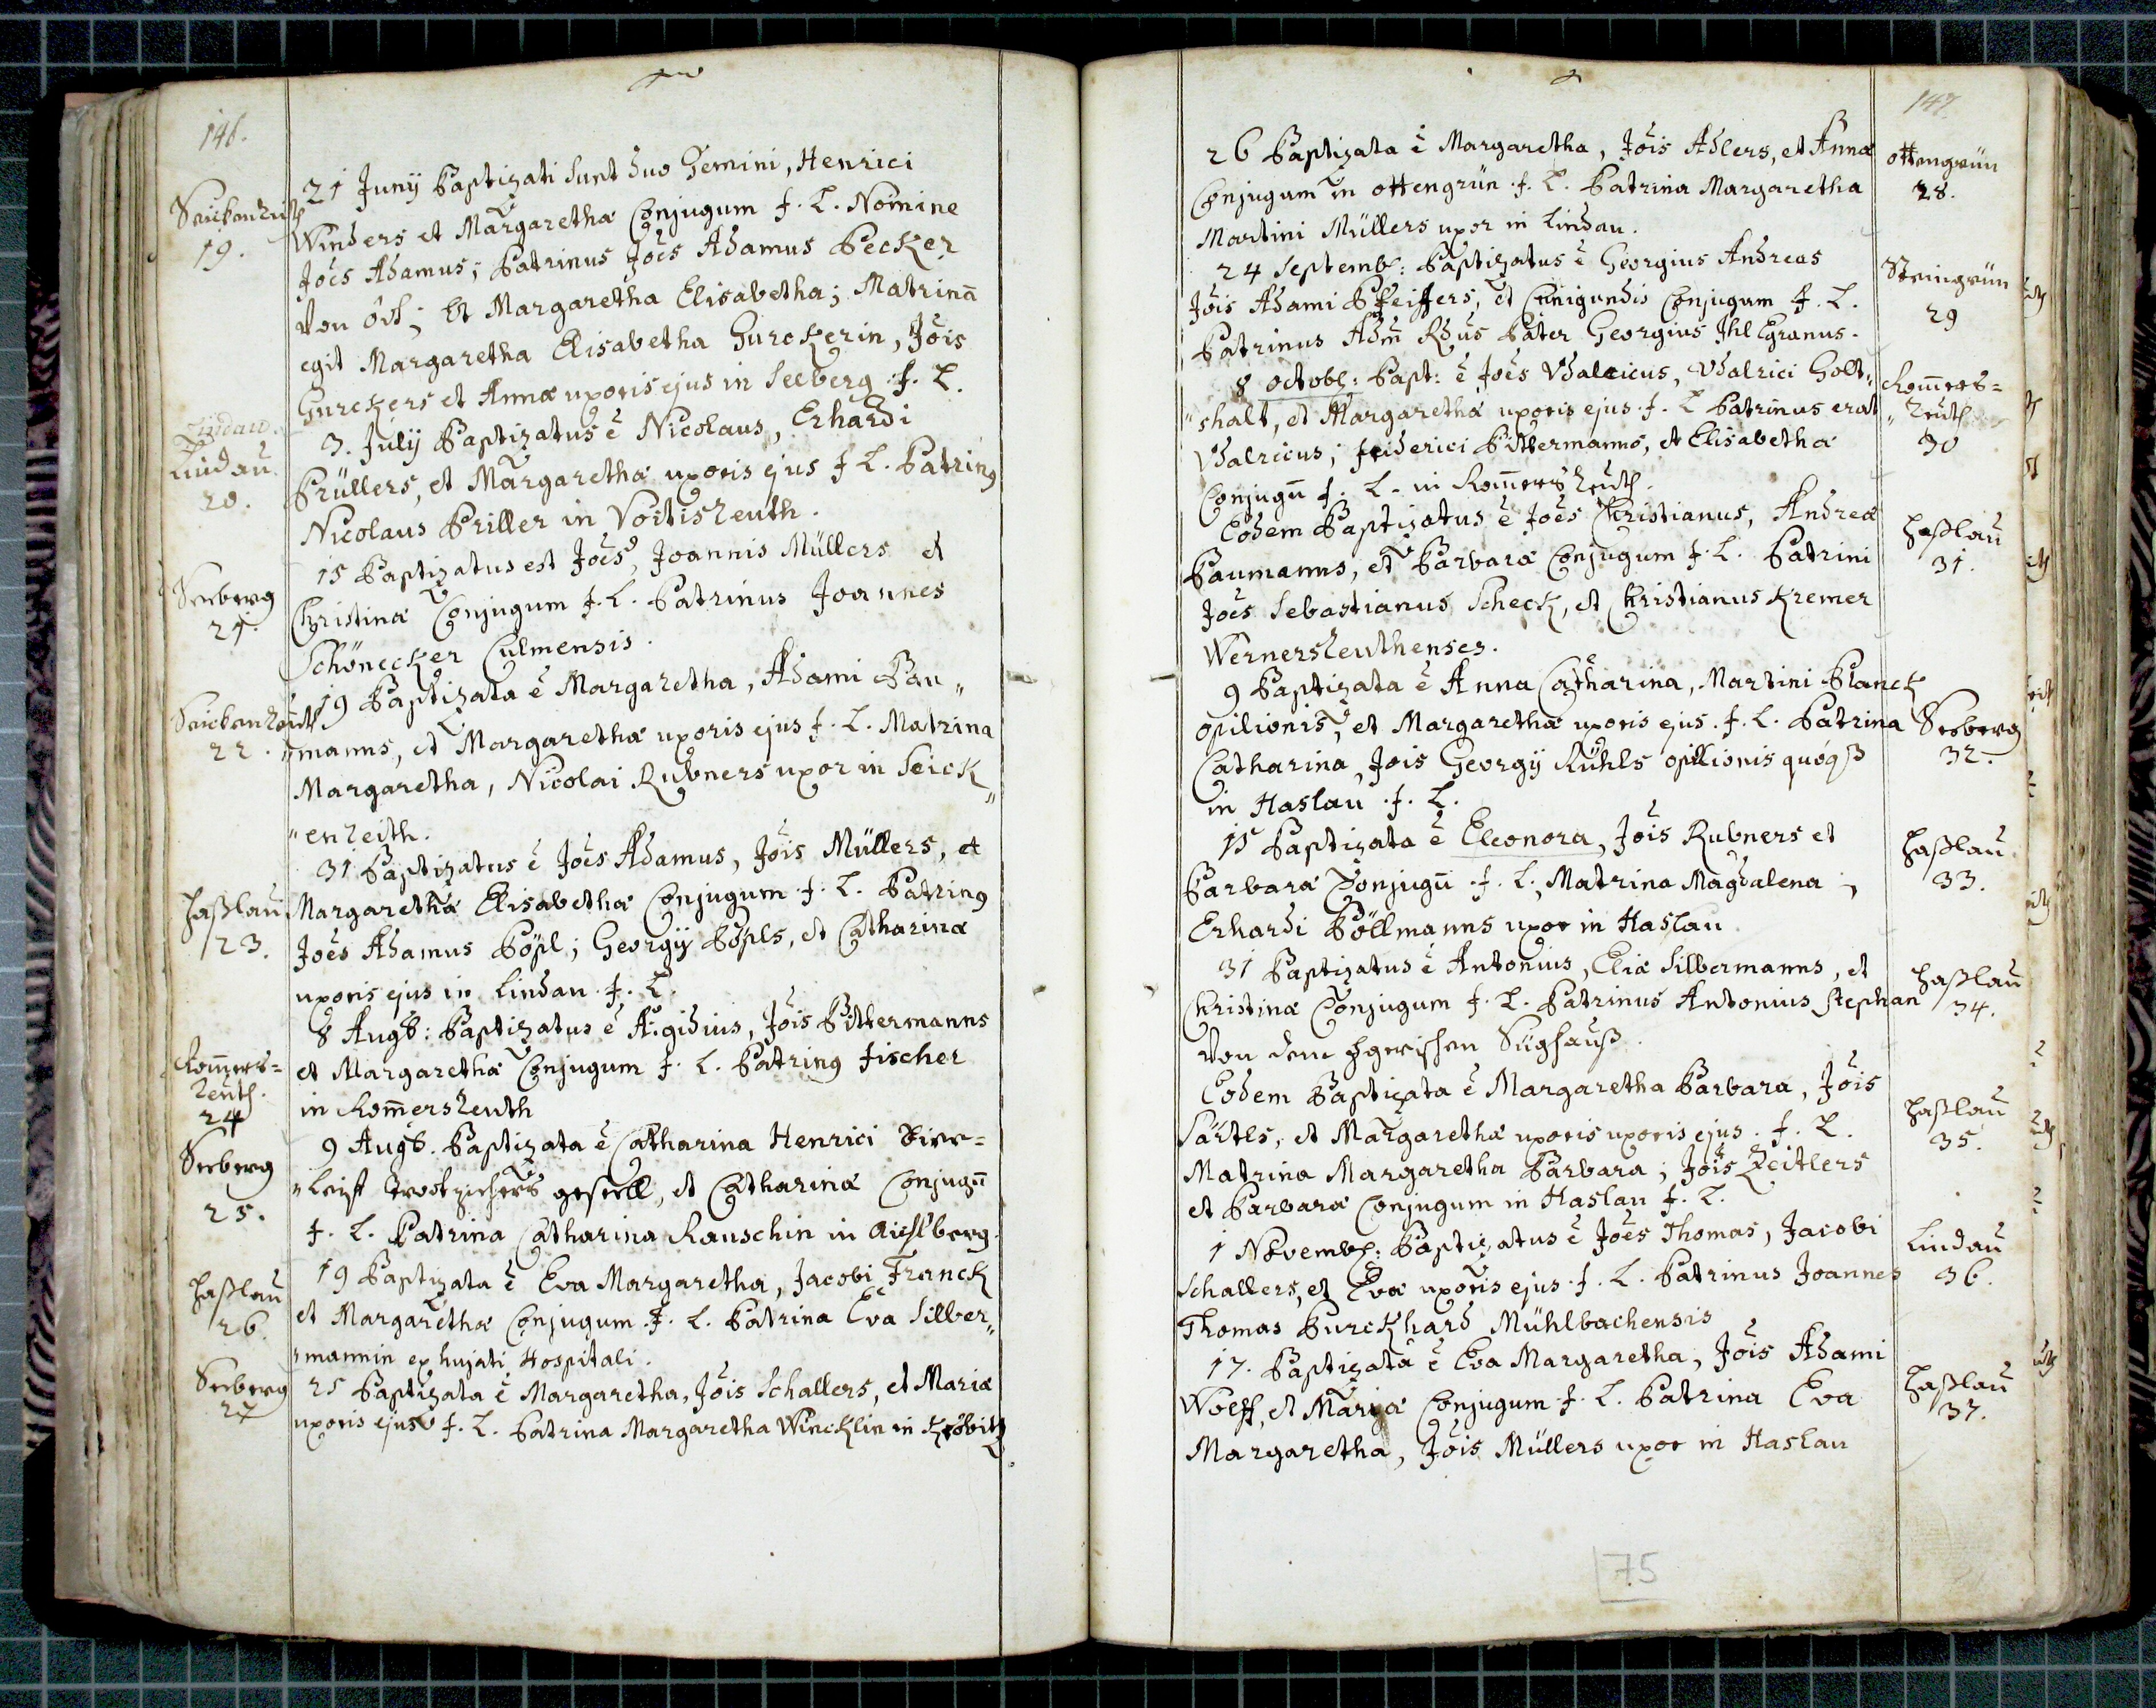 146.
Seickenreith
19.
21 Junij Baptizati sunt duo Gemini, Henrici
Winders et Margaretha Conjugum f. L. Nomine
Joes Adamus; Patrinus Joes Adamus Becker
Von ; Et Margaretha Elisabetha; Matrinā
egit Margaretha Elisabetha Gurckerin, Jois
Gurckers et Annæ uxoris ejus in Seeberg f. L.
Lindau
Lindau
20.
3. Julij Baptizatus ē Nicolaus, Erhardi
Prüllers, et Margarethæ uxoris ejus f. L. Patrinus
Nicolaus Priller in Voitisreuth.
Seeberg
21.
15 Baptizatus est Joēs, Joannis Müllers et
Christinæ Conjugum f. L. Patrinus Joannes
Schönecker Culmensis.
Seickenreuth
22.
19 Baptizata ē Margaretha, Adami Bau„
„manns, et Margarethæ uxoris ejus f. L. Matrina
Margaretha, Nicolai Rubners uxor in Seick„
„enreith.
Haßlau
23.
31 Baptizatus ē Joēs Adamus, Jōis Müllers, et
Margarethæ Elisabethæ Conjugum f. L. Patrinus
Joēs Adamus Pöpl; Georgij Pöpls, et Catharinæ
uxoris ejus in Lindau f. L.
Rom̄ers=
reuth.
24
8 Augb: Baptizatus ē Ægidius, Jōis Bittermanns
et Margarethæ Conjugum f. L. Patrinus Fischer
in Rom̄ersreuth
Seeberg
25.
9 Augb. Baptizata ē Catharina Henrici
gesell, et Catharinæ Conjugū
f. L. Patrina Catharina Rauschin in
Haßlau
26.
19 Baptizata ē Eva Margaretha, Jacobi Franck
et Margarethæ Conjugum f. L. Patrina Eva Silber„
„mannin ex hujati Hospitali.
Seeberg
27
25 Baptizata ē Margaretha, Jōis Schallers, et Mariæ
uxoris ejus f. L. Patrina Margaretha Wincklin in Kröbitz
147.
26 Baptizata ē Margaretha, Jōis Adlers, et Annæ
Conjugum in Ottengrün f. L. Patrina Margaretha
Martini Müllers uxor in Lindau.
Ottengrün
28.
24 Septemb: Baptizatus ē Georgius Andreas
Jōis Adami Pfeiffers, et Cunigundis Conjugum f. L.
Patrinus Adm̄ Rdus Pater Georgius Ihl Egranus.
Steingrün
29
8 Octobr: Bapt: ē Joēs Udalricus, Udalrici Gott„
„schalt, et Margarethæ uxoris ejus f. L Patrinus erat
Udalricus; Friderici Bittermanns, et Elisabethæ
Conjugū f. L. in Rom̄ersreuth.
Rom̄ers=
reuth
30
Eodem Baptizatus ē Joēs Christianus, Andreæ
Baumanns, et Barbaræ Conjugum f. L. Patrini
Joēs Sebastianus Scheck, et Christianus Kremer
Wernersreuthenses.
Haßlau
31.
9 Baptizata ē Anna Catharina, Martini Planck
opilionis, et Margarethæ uxoris ejus f. L. Patrina
Catharina, Jois Georgij Rühls opilionis quoqß
in Haslau f. L.
Seeberg
32.
15 Baptizata ē Eleonora, Jōis Rubners et
Barbaræ Conjugū f. L., Matrina Magdalena,
Erhardi Böllmanns uxor in Haslau
Haßlau
33.
31 Baptizatus ē Antonius, Eliæ Silbermanns, et
Christinæ Conjugum f. L. Patrinus Antonius Stephan
Von dem
Haßlau
34.
Eodem Baptizata ē Margaretha Barbara, Jōis
Särtls, et Margarethæ uxoris uxoris ejus f. L.
Matrina Margaretha Barbara; Jōis Zeitlers
et Barbaræ Conjugum in Haslau f. L.
Haßlau
35.
1 Novemb: Baptizatus ē Joēs Thomas, Jacobi
Schallers, et Evæ uxoris ejus f. L. Patrinus Joannes
Thomas Burckhard Mühlbachensis
Lindau
36.
17. Baptizata ē Eva Margaretha, Jōis Adami
Wolff, et Mariæ Conjugum f. L. Patrina Eva
Margaretha, Jōis Müllers uxor in Haslau
Haßlau
37.
75